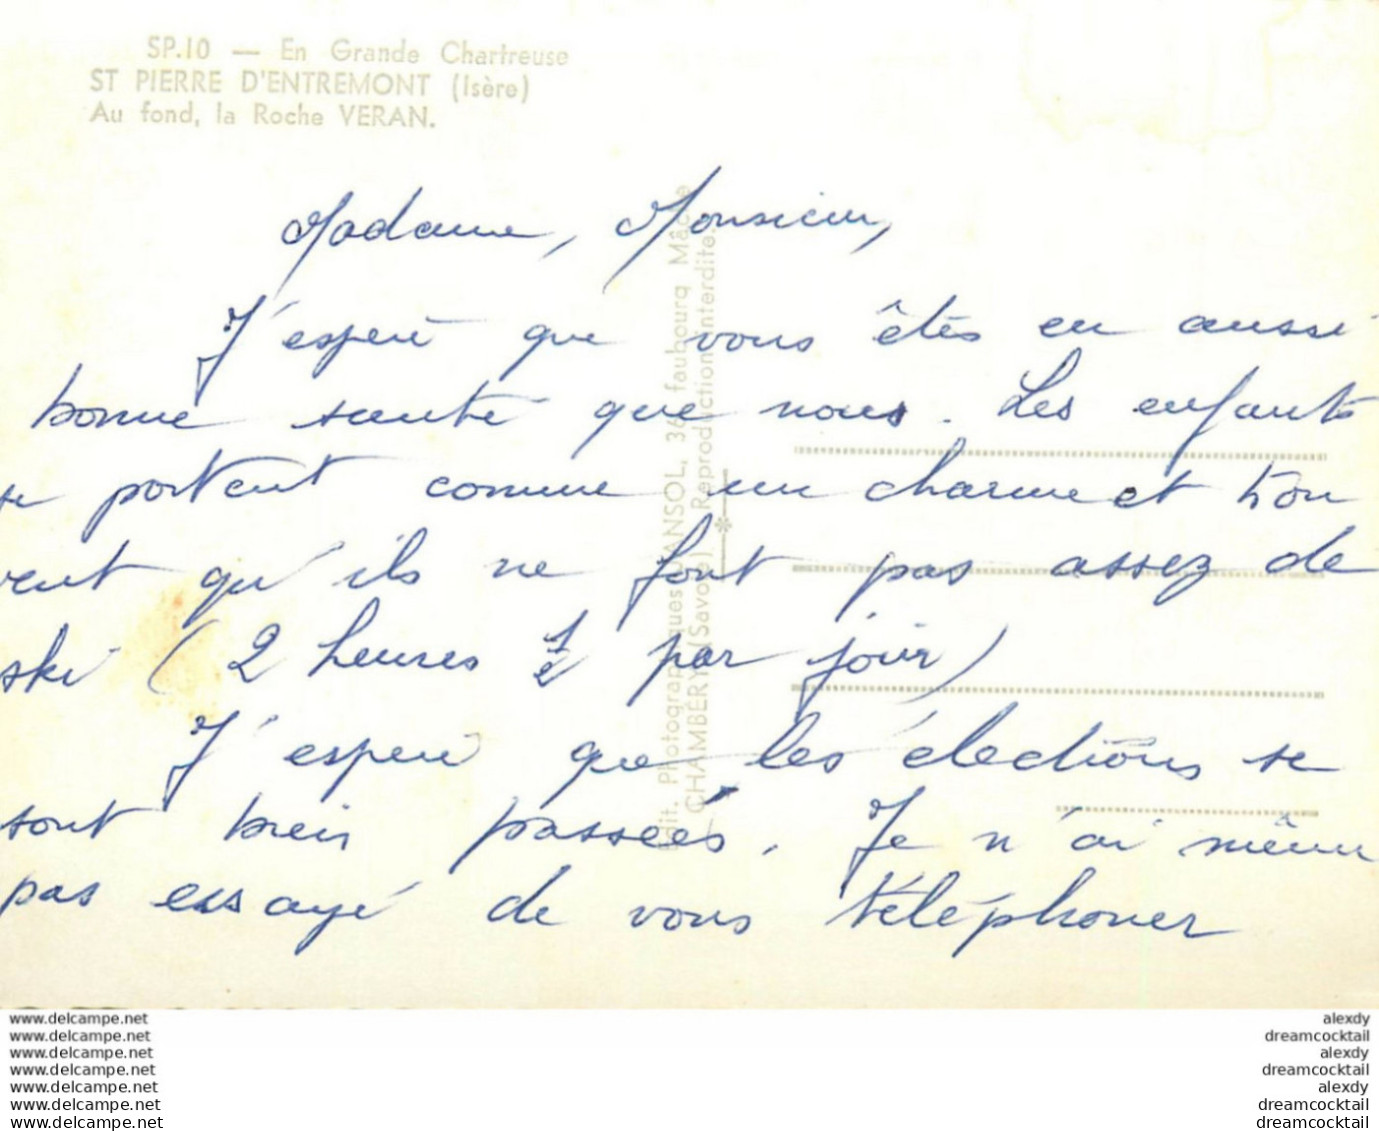 SP.10 — En Grande Chartreuse
ST PIERRE D'ENTREMONT (Isère)
Au fond, la Roche VERAN.
Madame, Monsieur,
J'espère que vous êtes en aussi
bonne santé que nous. Les enfants
se portent comme un charme et trou
vent qu'ils ne font pas assez de
ski (2 heures 1/2 par jour)
J'espère que les élections se
sont bien passées. Je n'ai même
pas essayé de vous téléphoner
Edit. Photographiques JANSOL, 36 faubourg Mâché
CHAMBÉRY (Savoie) Reproduction interdite.
www.delcampe.net
www.delcampe.net
www.delcampe.net
www.delcampe.net
www.delcampe.net
www.delcampe.net
www.delcampe.net
alexdy
dreamcocktail
alexdy
dreamcocktail
alexdy
dreamcocktail
dreamcocktail